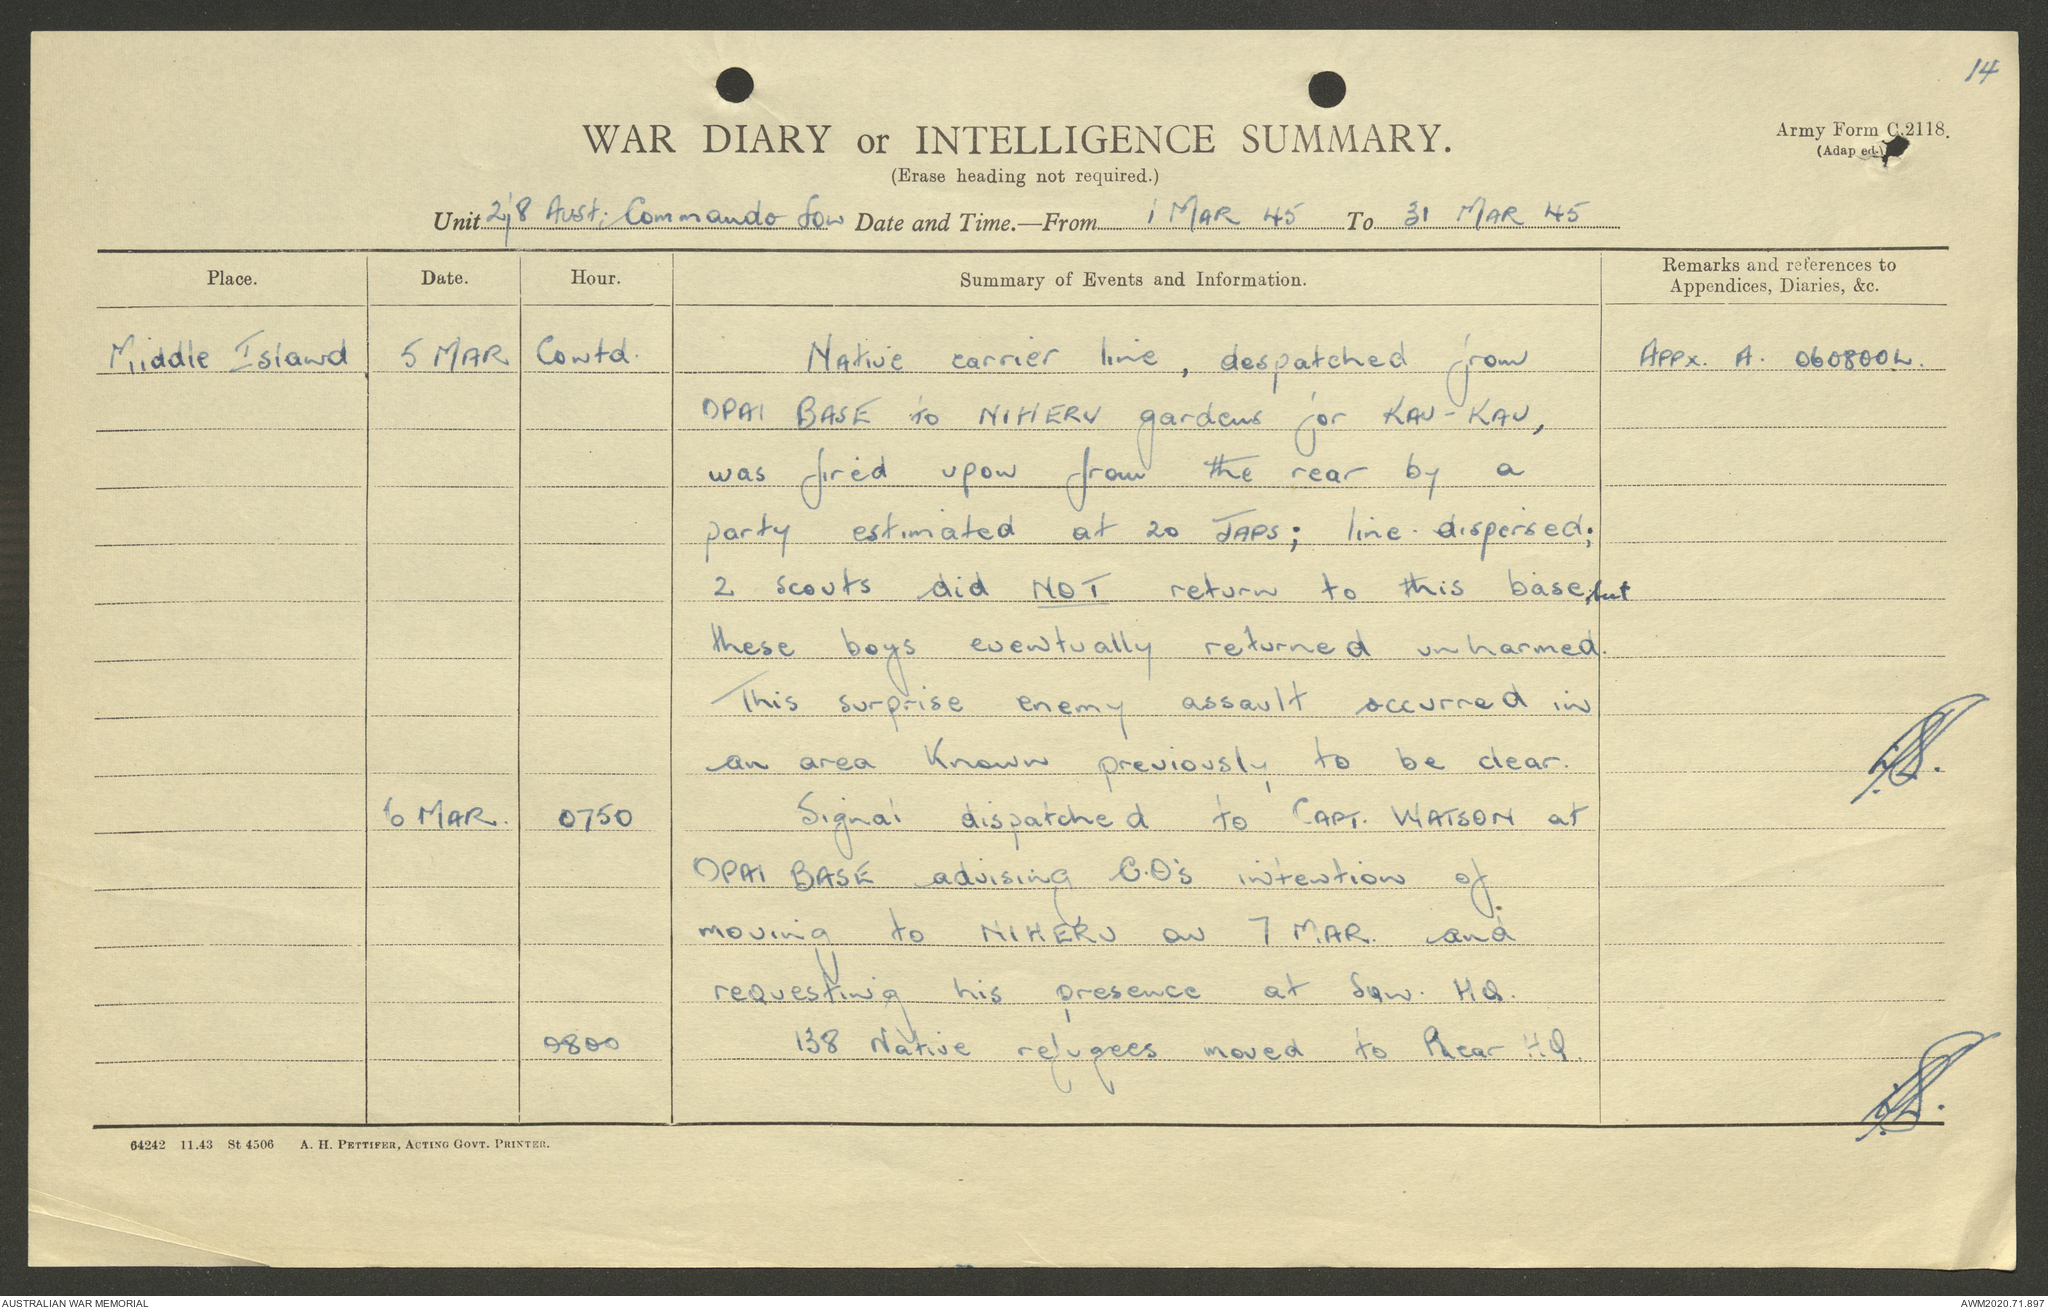 14
WAR DIARY or INTELLIGENCE SUMMARY.
Army Form C.2118.
(Adap ed.)
(Erase heading not required.)
Unit 2/8 Aust. Commando Sqn Date and Time.—From 1 MAR 45 To 31 MAR 45
Place. Date. Hour. Summary of Events and Information. Remarks and references to Appendices, Diaries, &c.
Middle Island 5 MAR Contd. Native carrier line, despatched from Appx. A. 060800L.
OPAI BASE to NIHERU gardens for KAU-KAU,
was fired upon from the rear by a
party estimated at 20 JAPS; line dispersed;
2 scouts did NOT return to this base, but
these boys eventually returned unharmed.
This surprise enemy assault occurred in
an area known previously to be clear.
6 MAR. 0750 Signal dispatched to CAPT. WATSON at
OPAI BASE advising C.O's intention of
moving to NIHERU on 7 MAR. and
requesting his presence at Sqn. HQ.
0800 138 Native refugees moved to Rear HQ.
64242 11.43 St 4506 A. H. PETTIFER, ACTING GOVT. PRINTER.
AUSTRALIAN WAR MEMORIAL
AWM2020.71.897